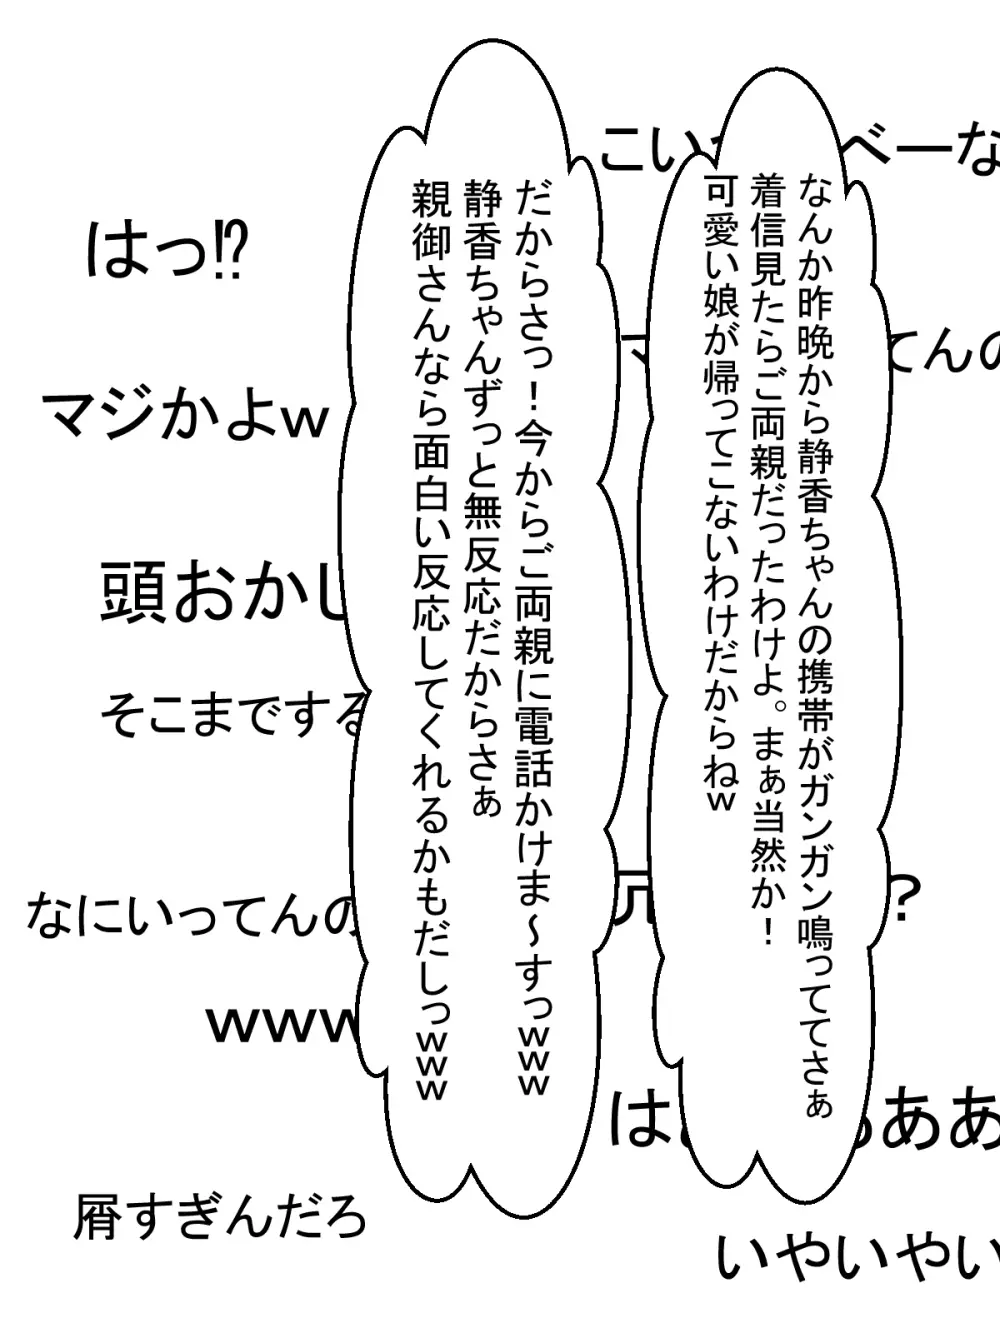 なんか昨晩から静香ちゃんの携帯がガンガン鳴っててさぁ
着信見たらご両親だったわけよ。まぁ当然か！
可愛い娘が帰ってこないわけだからねｗ
だからさっ！今からご両親に電話かけま～すっｗｗｗ
静香ちゃんずっと無反応だからさぁ
親御さんなら面白い反応してくれるかもだしっｗｗｗ
こい
べーな
てんの
？
は
ああ
いやいやい
はっ⁉
マジかよｗ
頭おかし
そこまでする
なにいってんの
ｗｗｗ
屑すぎんだろ